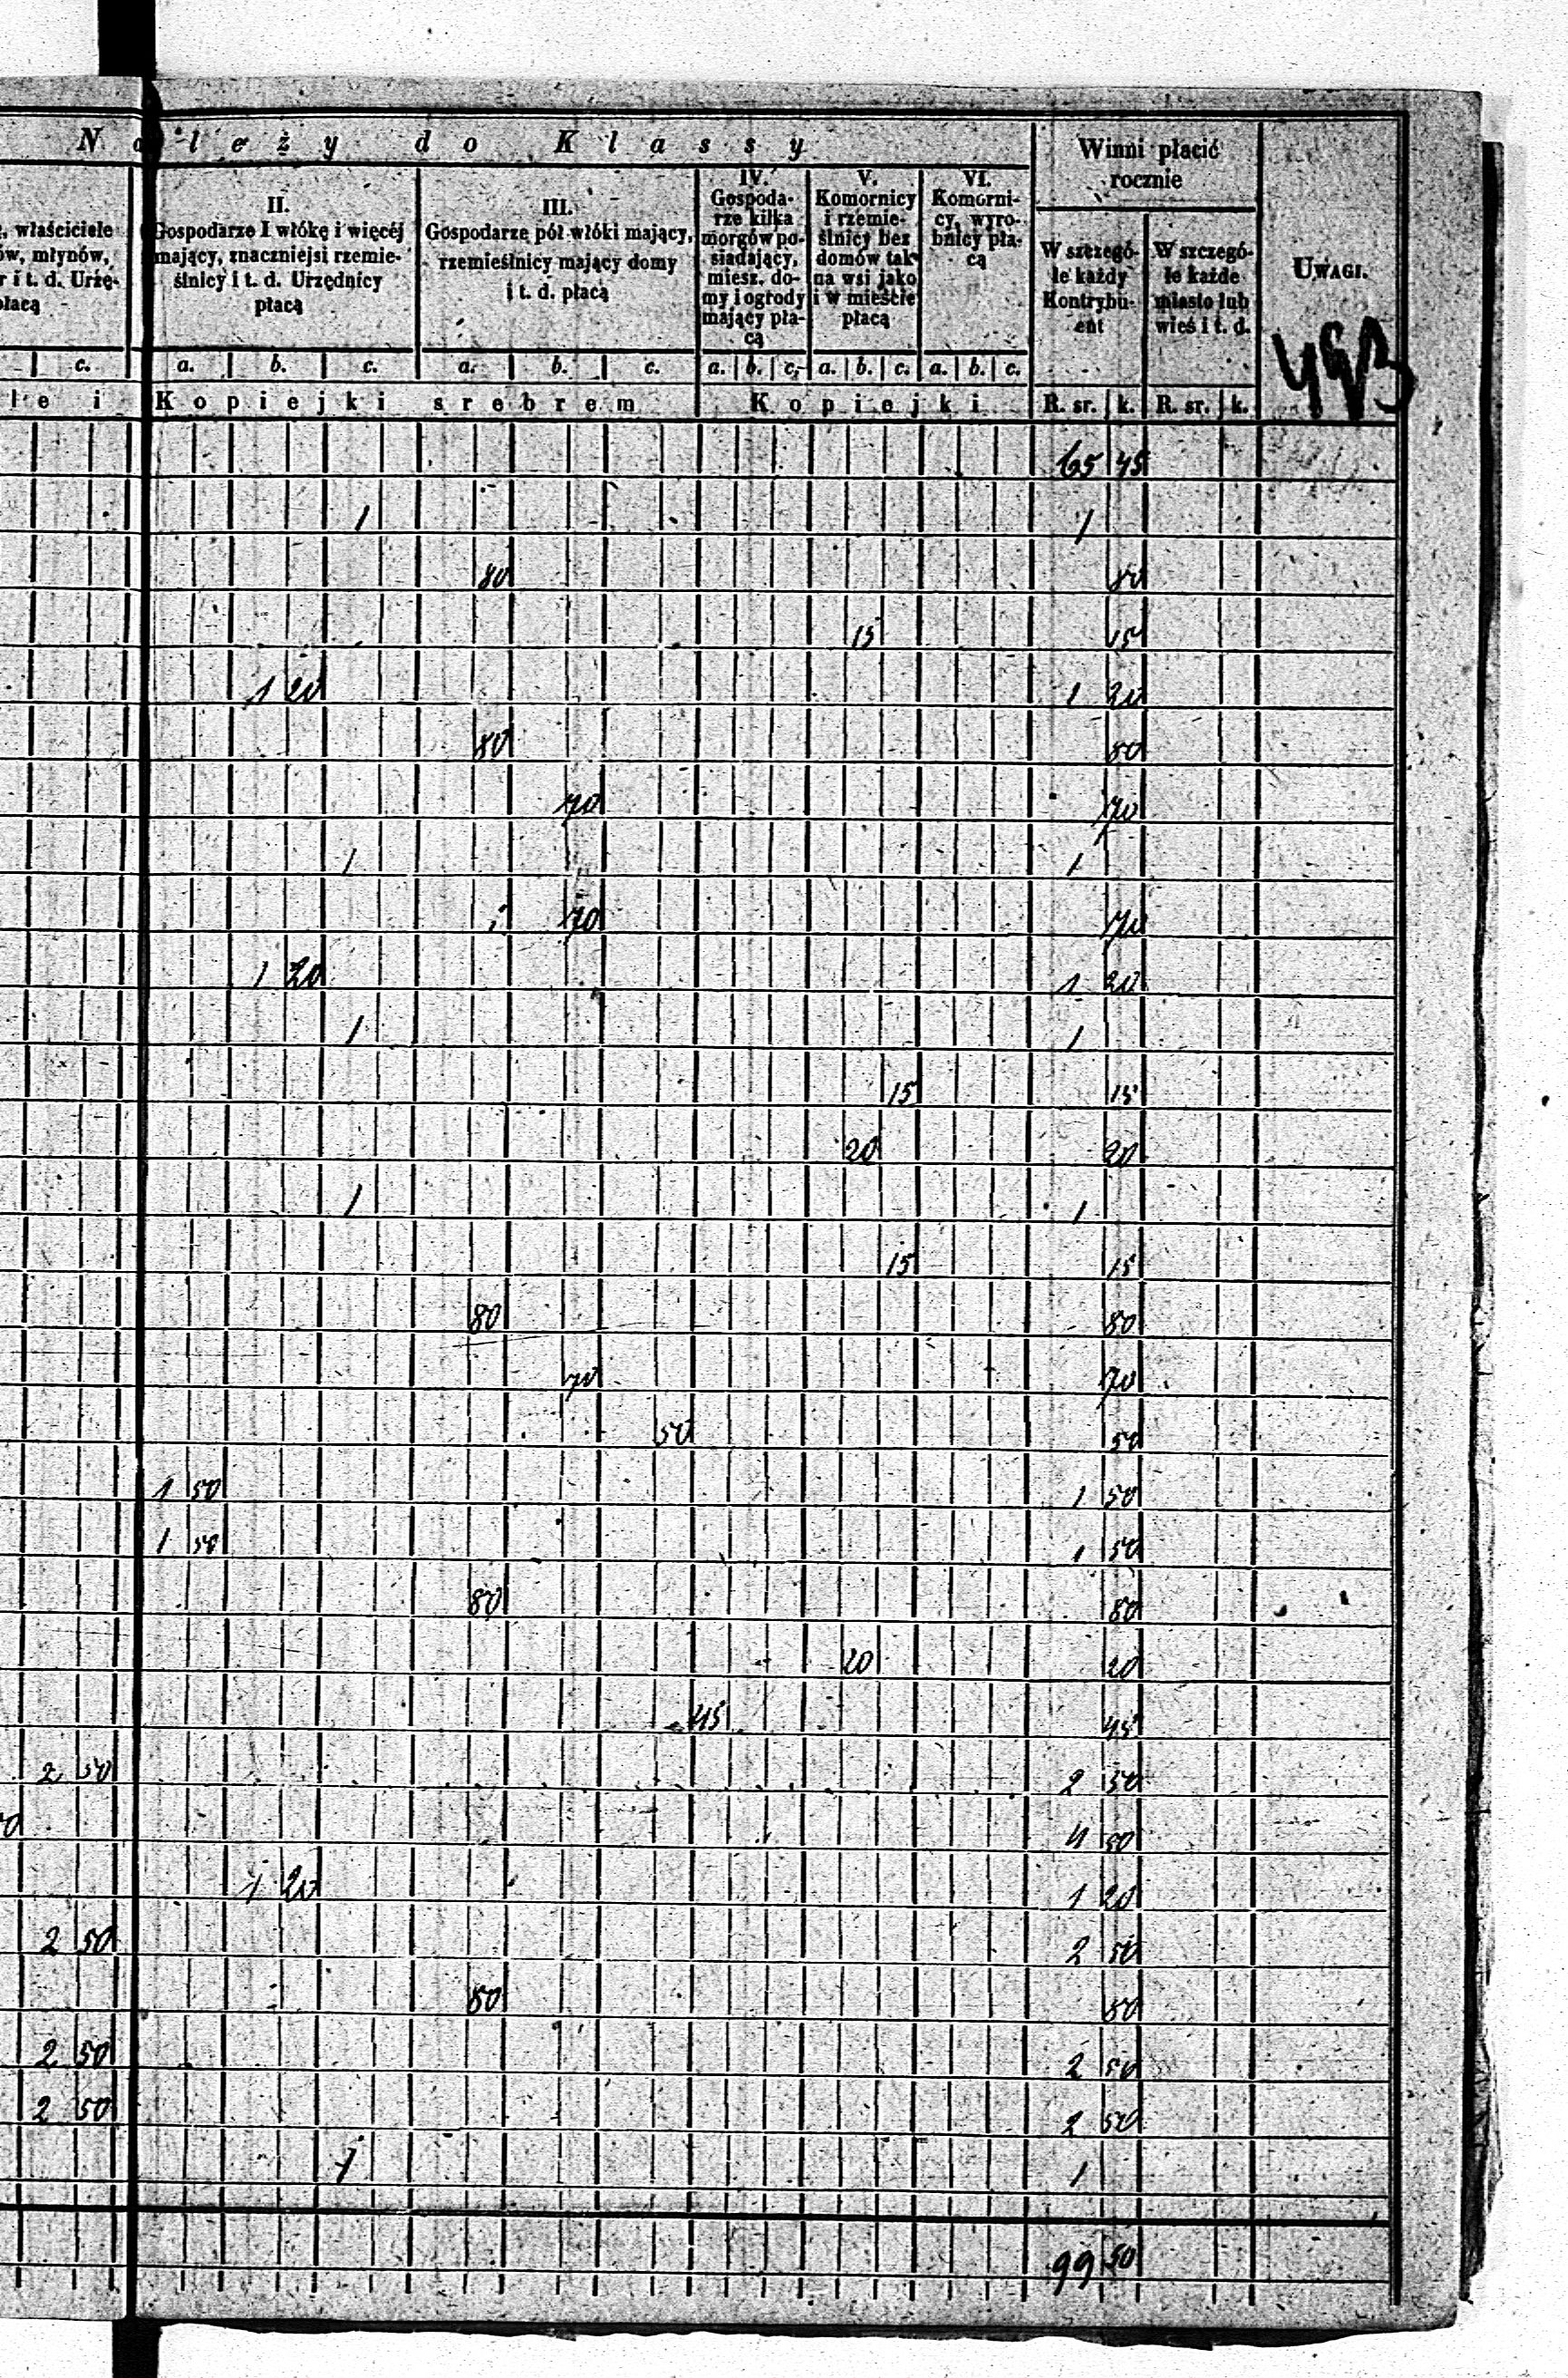 Należy do Klassy
Winni płacić rocznie
UWAGI.
, właściciele
ów, młynów,
r i t. d. Urzę-
płacą
II.
Gospodarze I włókę i więcéj
mający, znaczniejsi rzemie-
ślnicy i t. d. Urzędnicy
płacą
III.
Gospodarze pół włóki mający,
rzemieślnicy mający domy
i t. d. płacą
IV.
Gospoda-
rze kilka
morgów po-
siadający,
miesz. do-
my i ogrody
mający pła-
cą
V.
Komornicy
i rzemie-
ślnicy bez
domów tak
na wsi jako
i w mieście
płacą
VI.
Komorni-
cy, wyro-
bnicy pła-
cą
W szczegó-
le każdy
Kontrybu-
ent
W szczegó-
le każde
miasto lub
wieś i t. d.
c. a. b. c. a. b. c. a. b. c. a. b. c. a. b. c.
le i Kopiejki srebrem Kopiejki R. sr. k. R. sr. k.
65 45
1 1
80 80
15 15
1 20 1 20
80 80
70 70
1 1
70 70
1 20 1 20
1 1
15 15
20 20
1 1
15 15
80 80
70 70
50 50
1 50 1 50
1 50 1 50
80 80
20 20
45 45
2 50 2 50
4 50
1 20 1 20
2 50 2 50
80 80
2 50 2 50
2 50 2 50
1 1
99 50